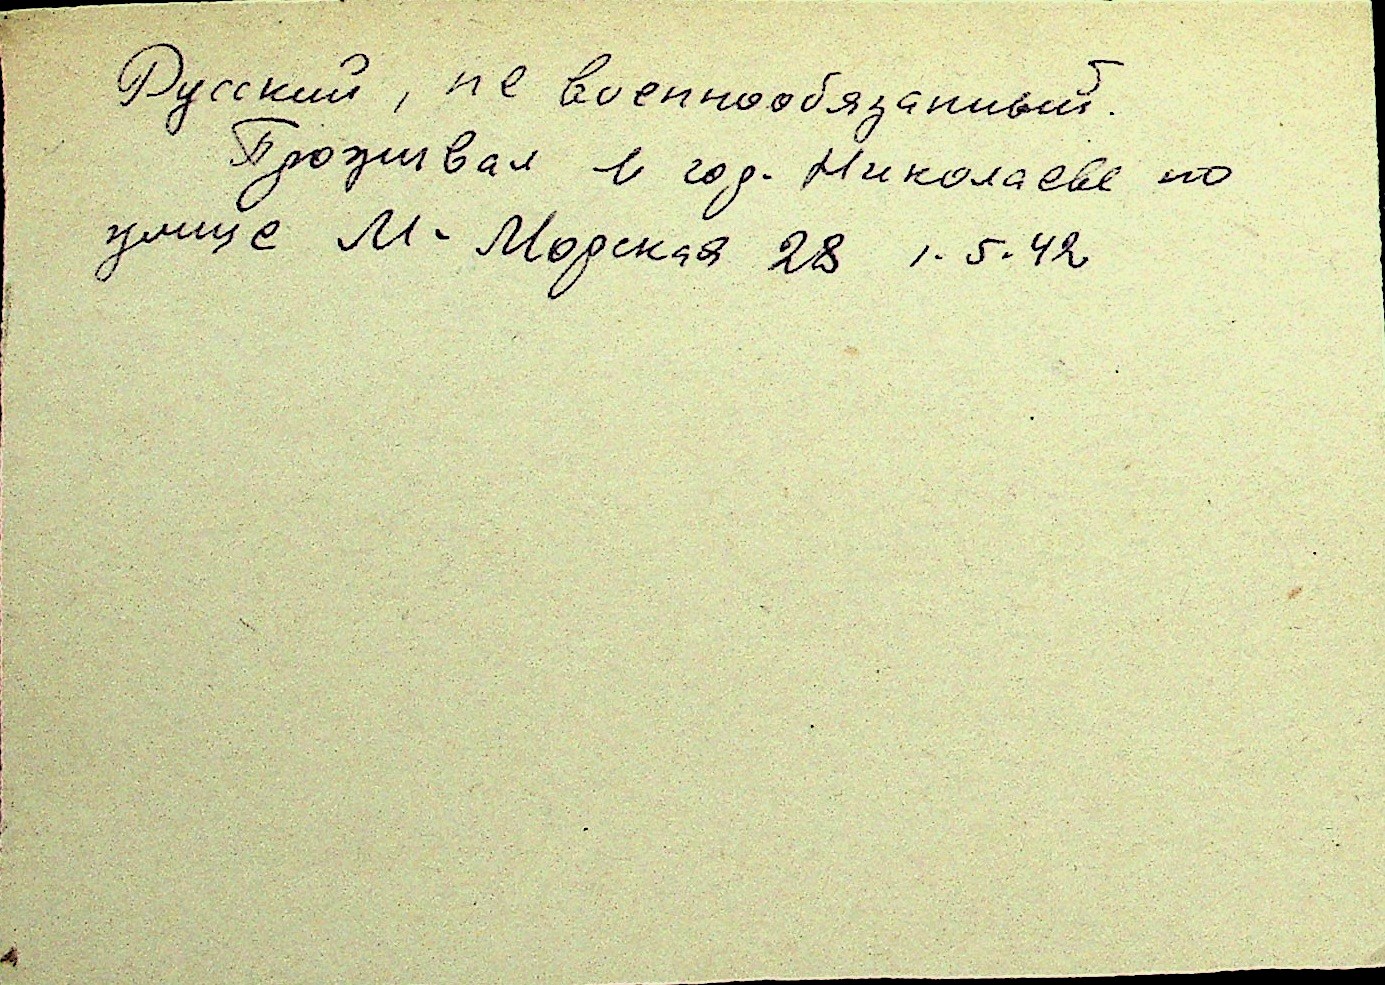 Русский, не военнообязанный.
Проживал в гор. Николаеве по
улице М-Морская 28 1.5.42